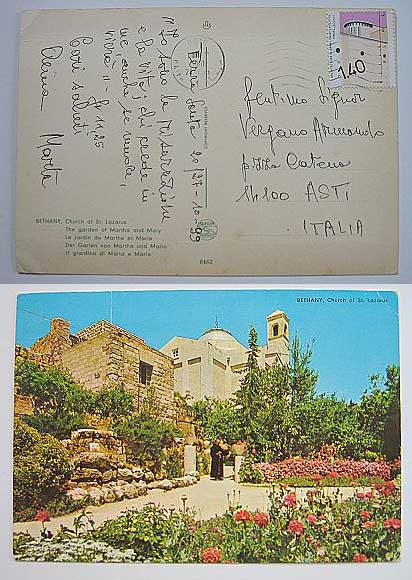 "Io sono la risurrezione
e la vita; chi crede in
me, anche se muore,
vivrà" Gv 11,25
Cari saluti
Terra Santa 20/27-10-99
140
Gentimo Signor
Vergano Armando
p.zza Catena
14100 ASTI
ITALIA
BETHANY, Church of St. Lazarus
The garden of Martha and Mary
Le jardin de Marthe et Marie
Der Garten von Martha und Maria
Il giardino di Marta e Maria
8462
BETHANY, Church of St. Lazarus